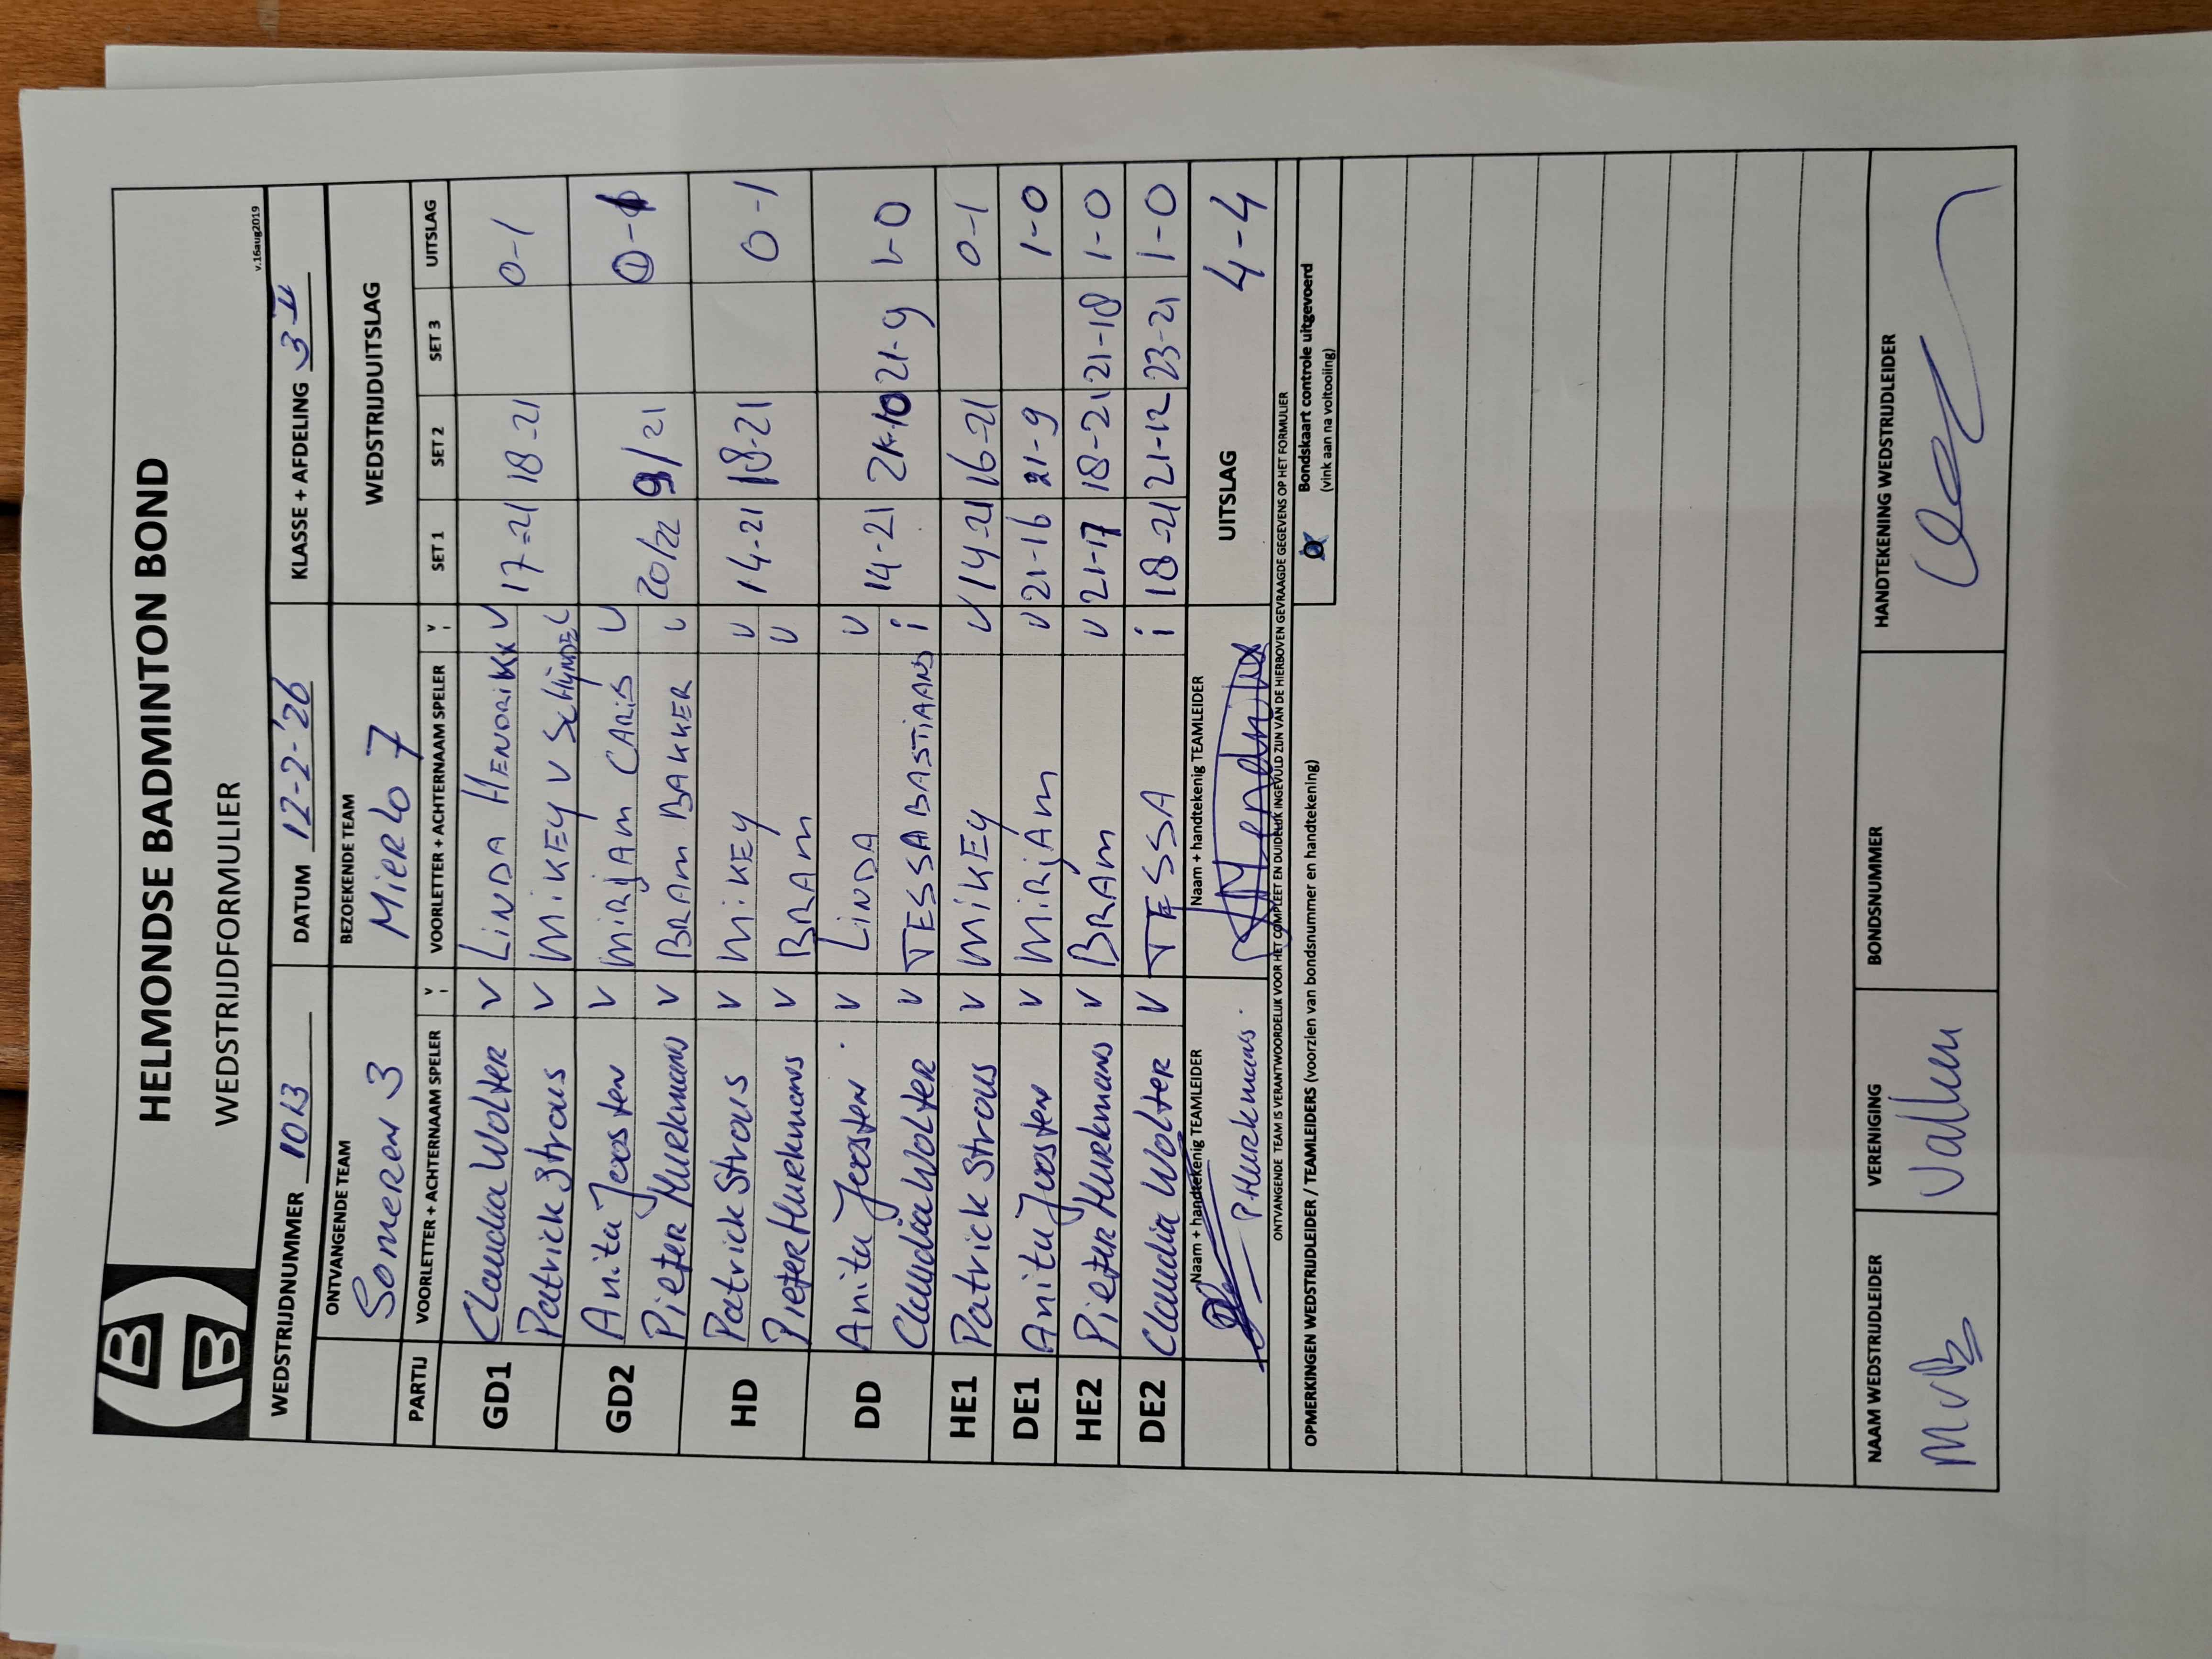 HELMONDSE BADMINTON BOND
WEDSTRIJDFORMULIER
v.16aug2019
WEDSTRIJDNUMMER 1013 DATUM 12-2-'26 KLASSE + AFDELING 3 II
ONTVANGENDE TEAM BEZOEKENDE TEAM WEDSTRIJDUITSLAG
Someren 3 Mierlo 7
PARTIJ VOORLETTER + ACHTERNAAM SPELER V I VOORLETTER + ACHTERNAAM SPELER V I SET 1 SET 2 SET 3 UITSLAG
GD1 Claudia Wolter V LINDA HENDRIKX V 17-21 18-21 0-1
Patrick Strous V MIKEY V SCHIJNDEL
GD2 Anita Joosten V MIRJAM CARIS V 20/22 9/21 0-1
Pieter Hurkmans V BRAM BAKKER V
HD Patrick Strous V MIKEY V 14-21 18-21 0-1
Pieter Hurkmans V BRAM V
DD Anita Joosten V LINDA V 14-21 21-10 21-9 1-0
Claudia Wolter V TESSA BASTIAANS i
HE1 Patrick Strous V MIKEY V 14-21 16-21 0-1
DE1 Anita Joosten V MIRJAM V 21-16 21-9 1-0
HE2 Pieter Hurkmans V BRAM V 21-17 18-21 21-18 1-0
DE2 Claudia Wolter V TESSA i 18-21 21-12 23-21 1-0
Naam + handtekenig TEAMLEIDER Naam + handtekenig TEAMLEIDER UITSLAG 4-4
P Hurkmans
ONTVANGENDE TEAM IS VERANTWOORDELIJK VOOR HET COMPLEET EN DUIDELIJK INGEVULD ZIJN VAN DE HIERBOVEN GEVRAAGDE GEGEVENS OP HET FORMULIER
OPMERKINGEN WEDSTRIJDLEIDER / TEAMLEIDERS (voorzien van bondsnummer en handtekening)
Bondskaart controle uitgevoerd
(vink aan na voltooiing)
NAAM WEDSTRIJDLEIDER VERENIGING BONDSNUMMER HANDTEKENING WEDSTRIJDLEIDER
MvB